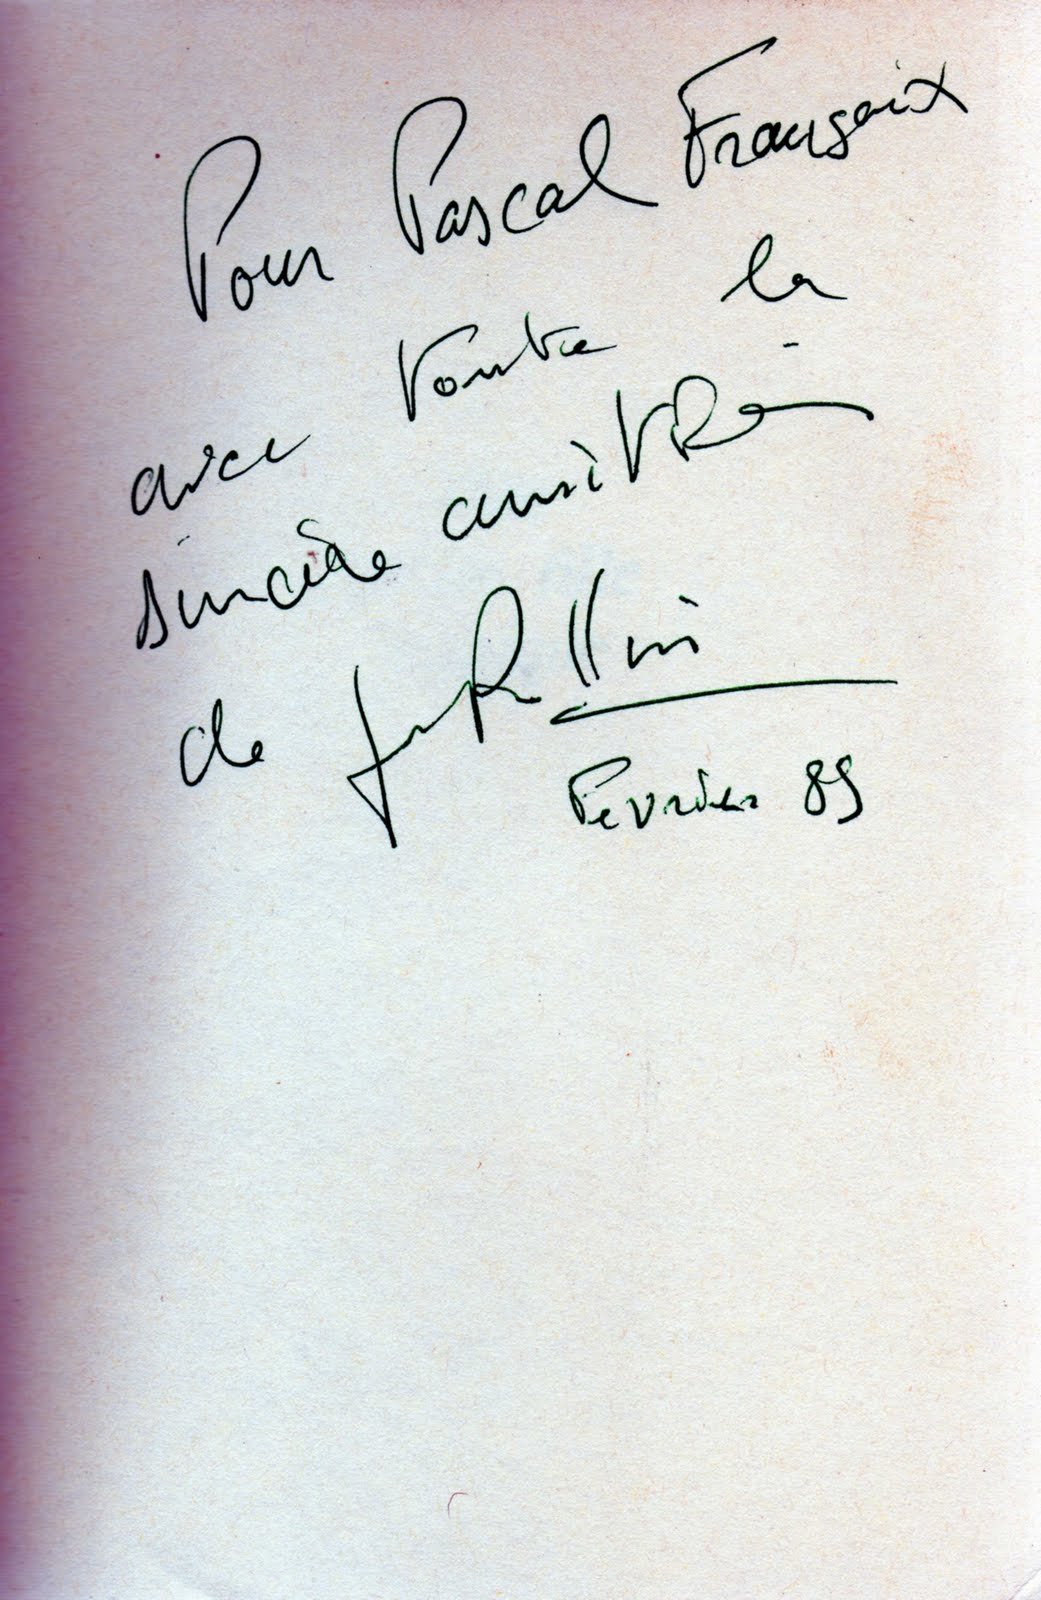 Pour Pascal Françaix
avec toute la
sincère amitié
de Jean Rollin
Fevrier 89